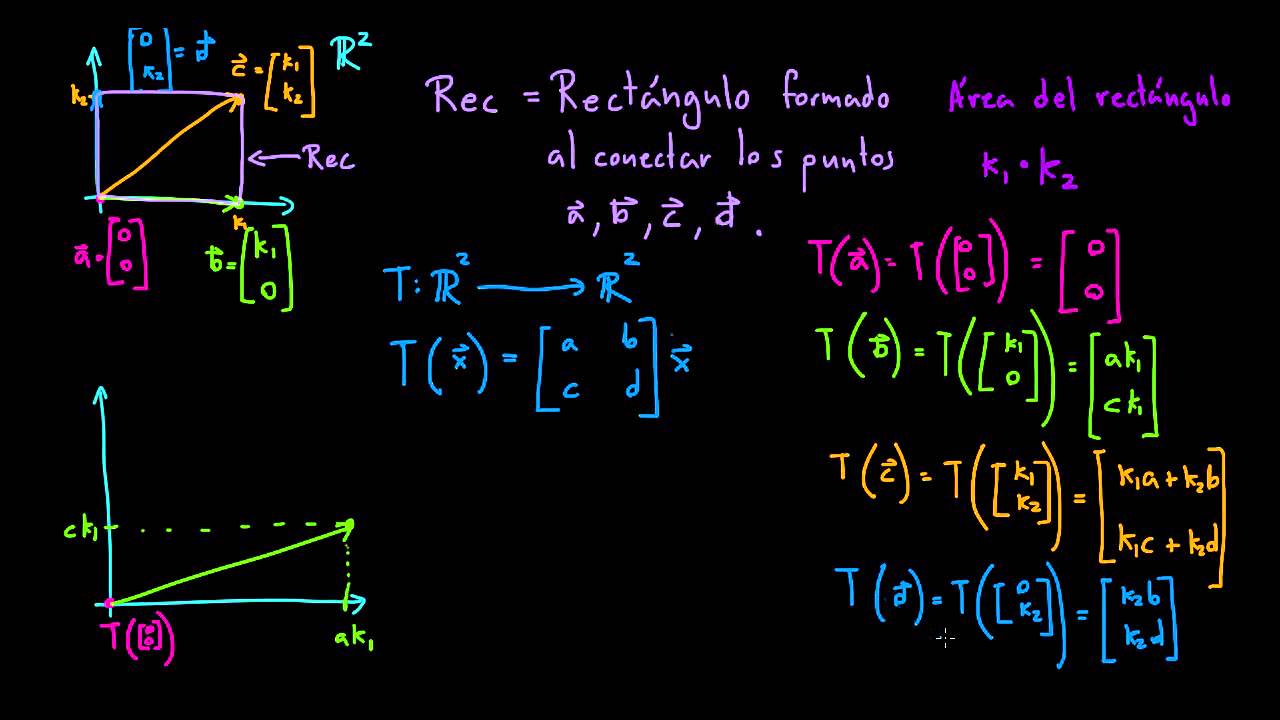 [0 k₂] = d⃗
c⃗ = [k₁ k₂]
ℝ²
k₂
Rec
k₁
a⃗ = [0 0]
b⃗ = [k₁ 0]
Rec = Rectángulo formado
al conectar los puntos
a⃗, b⃗, c⃗, d⃗.
Área del rectángulo
k₁ · k₂
T: ℝ² → ℝ²
T(x⃗) = [a b; c d] x⃗
T(a⃗) = T([0 0]) = [0 0]
T(b⃗) = T([k₁ 0]) = [ak₁ ck₁]
T(c⃗) = T([k₁ k₂]) = [k₁a + k₂b k₁c + k₂d]
T(d⃗) = T([0 k₂]) = [k₂b k₂d]
ck₁
T([0 0])
ak₁